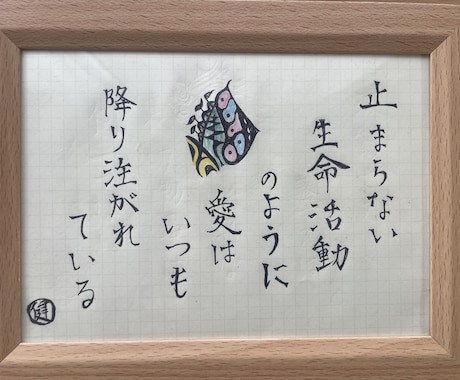 止まらない
生命活動
のように
愛は
いつも
降り注がれ
ている
健